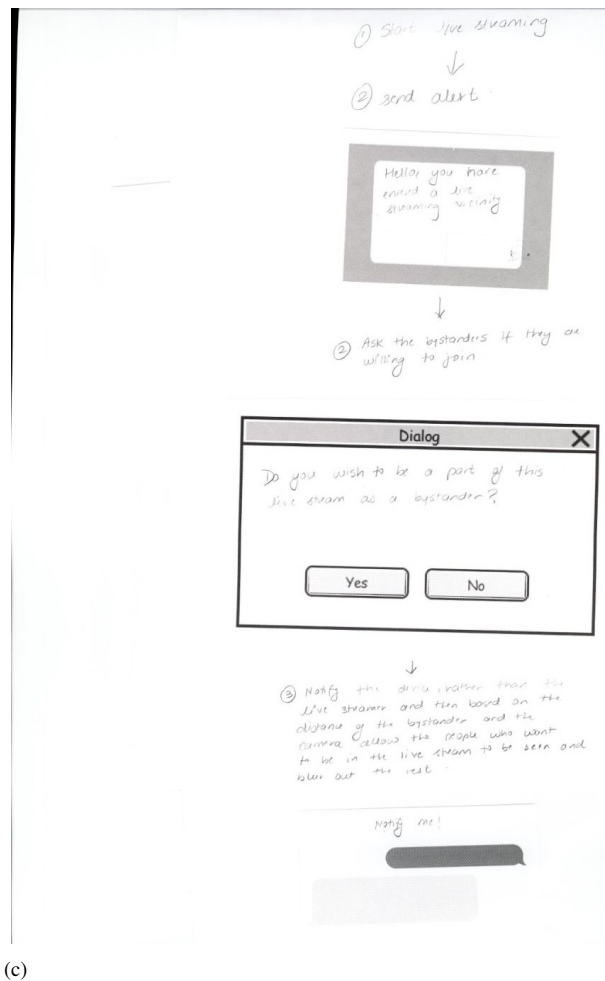 ① Start live streaming
② send alert
Hello, you have
entered a live
streaming vicinity
② Ask the bystanders if they are
willing to join
Dialog
Do you wish to be a part of this
live stream as a bystander?
Yes No
③ Notify the device rather than the
live streamer and then based on the
distance of the bystander and the
camera allow the people who want
to be in the live stream to be seen and
blur out the rest.
Notify me!
(c)